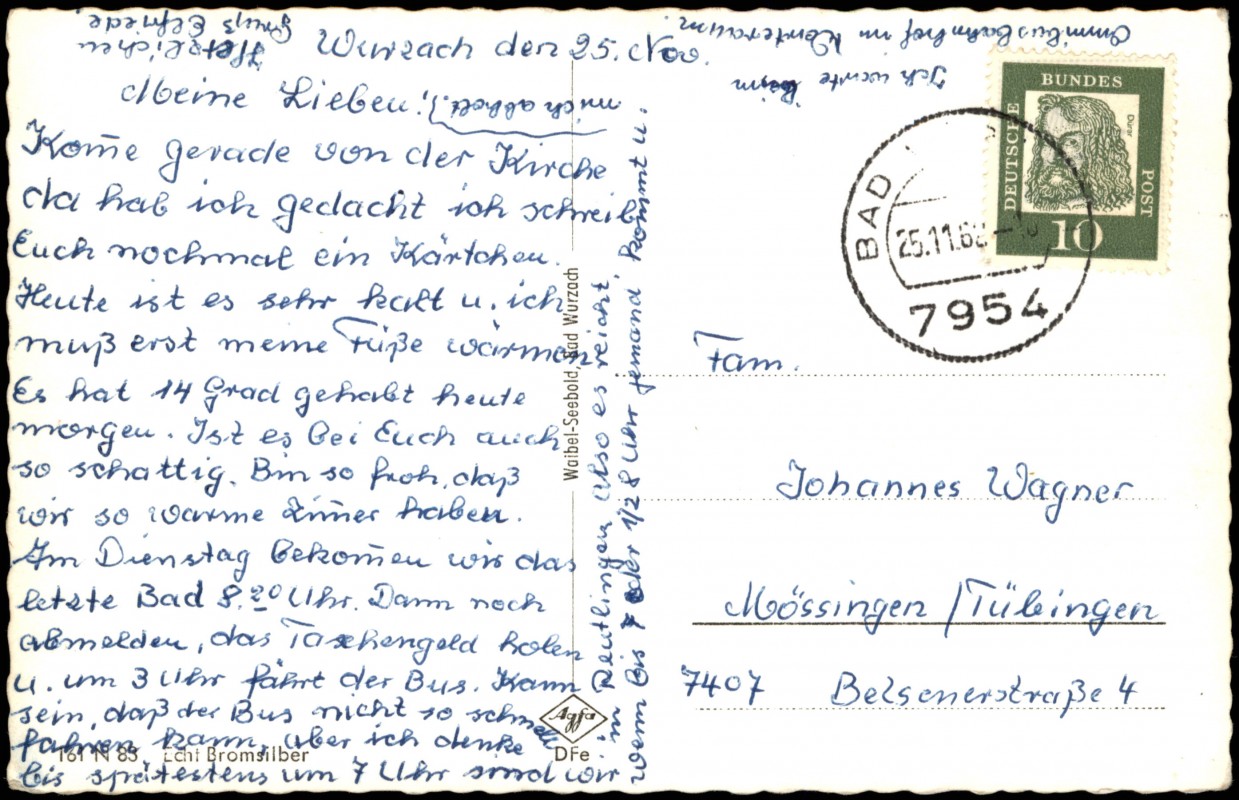 Wurzach den 25. Nov.
Meine Lieben!
Kom̄e gerade von der Kirche
da hab ich gedacht ich schreib
Euch nochmal ein Kärtchen.
Heute ist es sehr kalt u. ich
muß erst meine Füße wärmen
Es hat 14 Grad gehabt heute
morgen. Ist es bei Euch auch
so schattig. Bin so froh, daß
wir so warme Zim̄er haben.
Im Dienstag bekom̄en wir das
letzte Bad 8.20 Uhr. Dann noch
abmelden, das Taschengeld holen
u. um 3 Uhr fährt der Bus. Kann
sein, daß der Bus nicht so schnell
fahren kann, aber ich denke
bis spätestens um 7 Uhr sind wir
in Reutlingen. Also es reicht,
wenn bis 7 oder 1/2 8 Uhr jemand kommt u.
mich abholt.
Ich warte beim
Omnibusbahnhof im Warteraum.
Herzlichen
Gruß Elfriede.
161 N 83 Echt Bromsilber
Waibel-Seebold, Bad Wurzach
Agfa
DFe
DEUTSCHE
BUNDES
POST
Dürer
10
BAD
25.11.63
7954
Fam.
Johannes Wagner
Mössingen /Tübingen
7407 Belsenerstraße 4